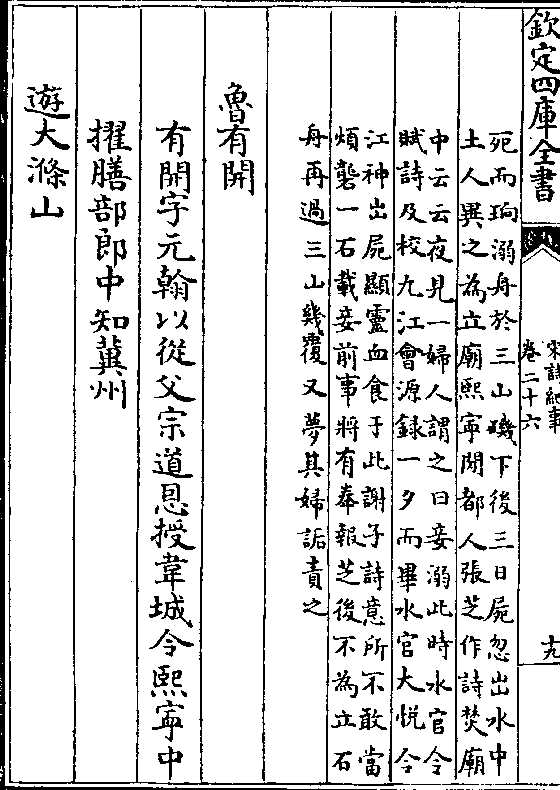 欽定四庫全書
宋詩紀事
卷二十六
十九
死而珣溺舟於三山磯下後三日屍忽出水中
土人異之為立廟熙寧閒都人張芝作詩焚廟
中云云夜見一婦人謂之曰妾溺此時水官令
賦詩及校九江會源録一夕而畢水官大悅令
江神出屍顯靈血食于此謝子詩意所不敢當
煩礱一石載妾前事將有奉報芝後不為立石
舟再過三山幾覆又夢其婦詬責之
魯有開
有開字元翰以從父宗道恩授韋城令熙寧中
擢膳部郎中知冀州
遊大滌山